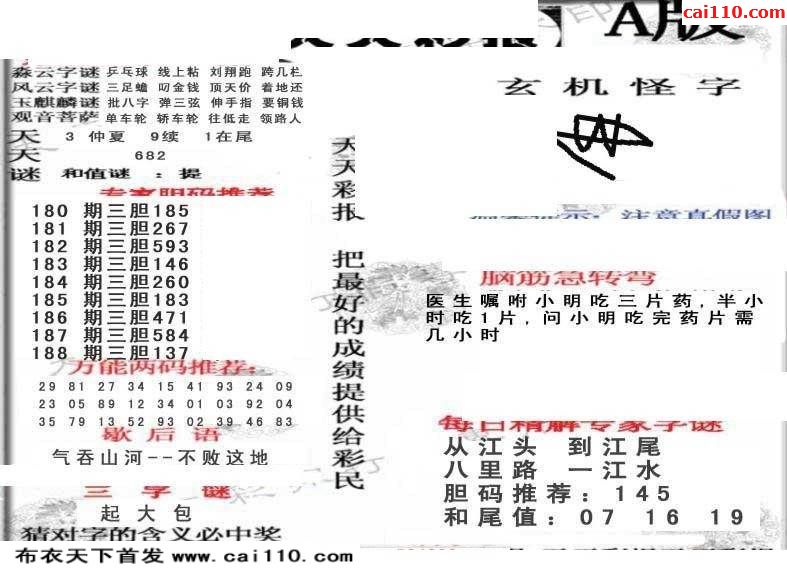 cai110.com
A版
淼云字谜 乒乓球 线上粘 刘翔跑 跨几栏
风云字谜 三足蟾 叼金钱 顶天价 着地还
玉麒麟谜 批八字 弹三弦 伸手指 要铜钱
观音菩萨 单车轮 轿车轮 往低走 领路人
天 3 仲夏 9续 1在尾
天 682
谜 和值谜 : 提
专家胆码推荐
180 期三胆185
181 期三胆267
182 期三胆593
183 期三胆146
184 期三胆260
185 期三胆183
186 期三胆471
187 期三胆584
188 期三胆137
万能两码推荐:
29 81 27 34 15 41 93 24 09
23 05 89 12 34 01 03 92 04
35 79 13 52 93 02 39 46 83
歇后语
气吞山河--不败这地
三字谜
起大包
猜对字的含义必中奖
布衣天下首发 www.cai110.com
天天彩报 把最好的成绩提供给彩民
玄机怪字
注意真假图
脑筋急转弯
医生嘱咐小明吃三片药,半小
时吃1片,问小明吃完药片需
几小时
每日精解专家字谜
从江头 到江尾
八里路 一江水
胆码推荐: 145
和尾值: 07 16 19